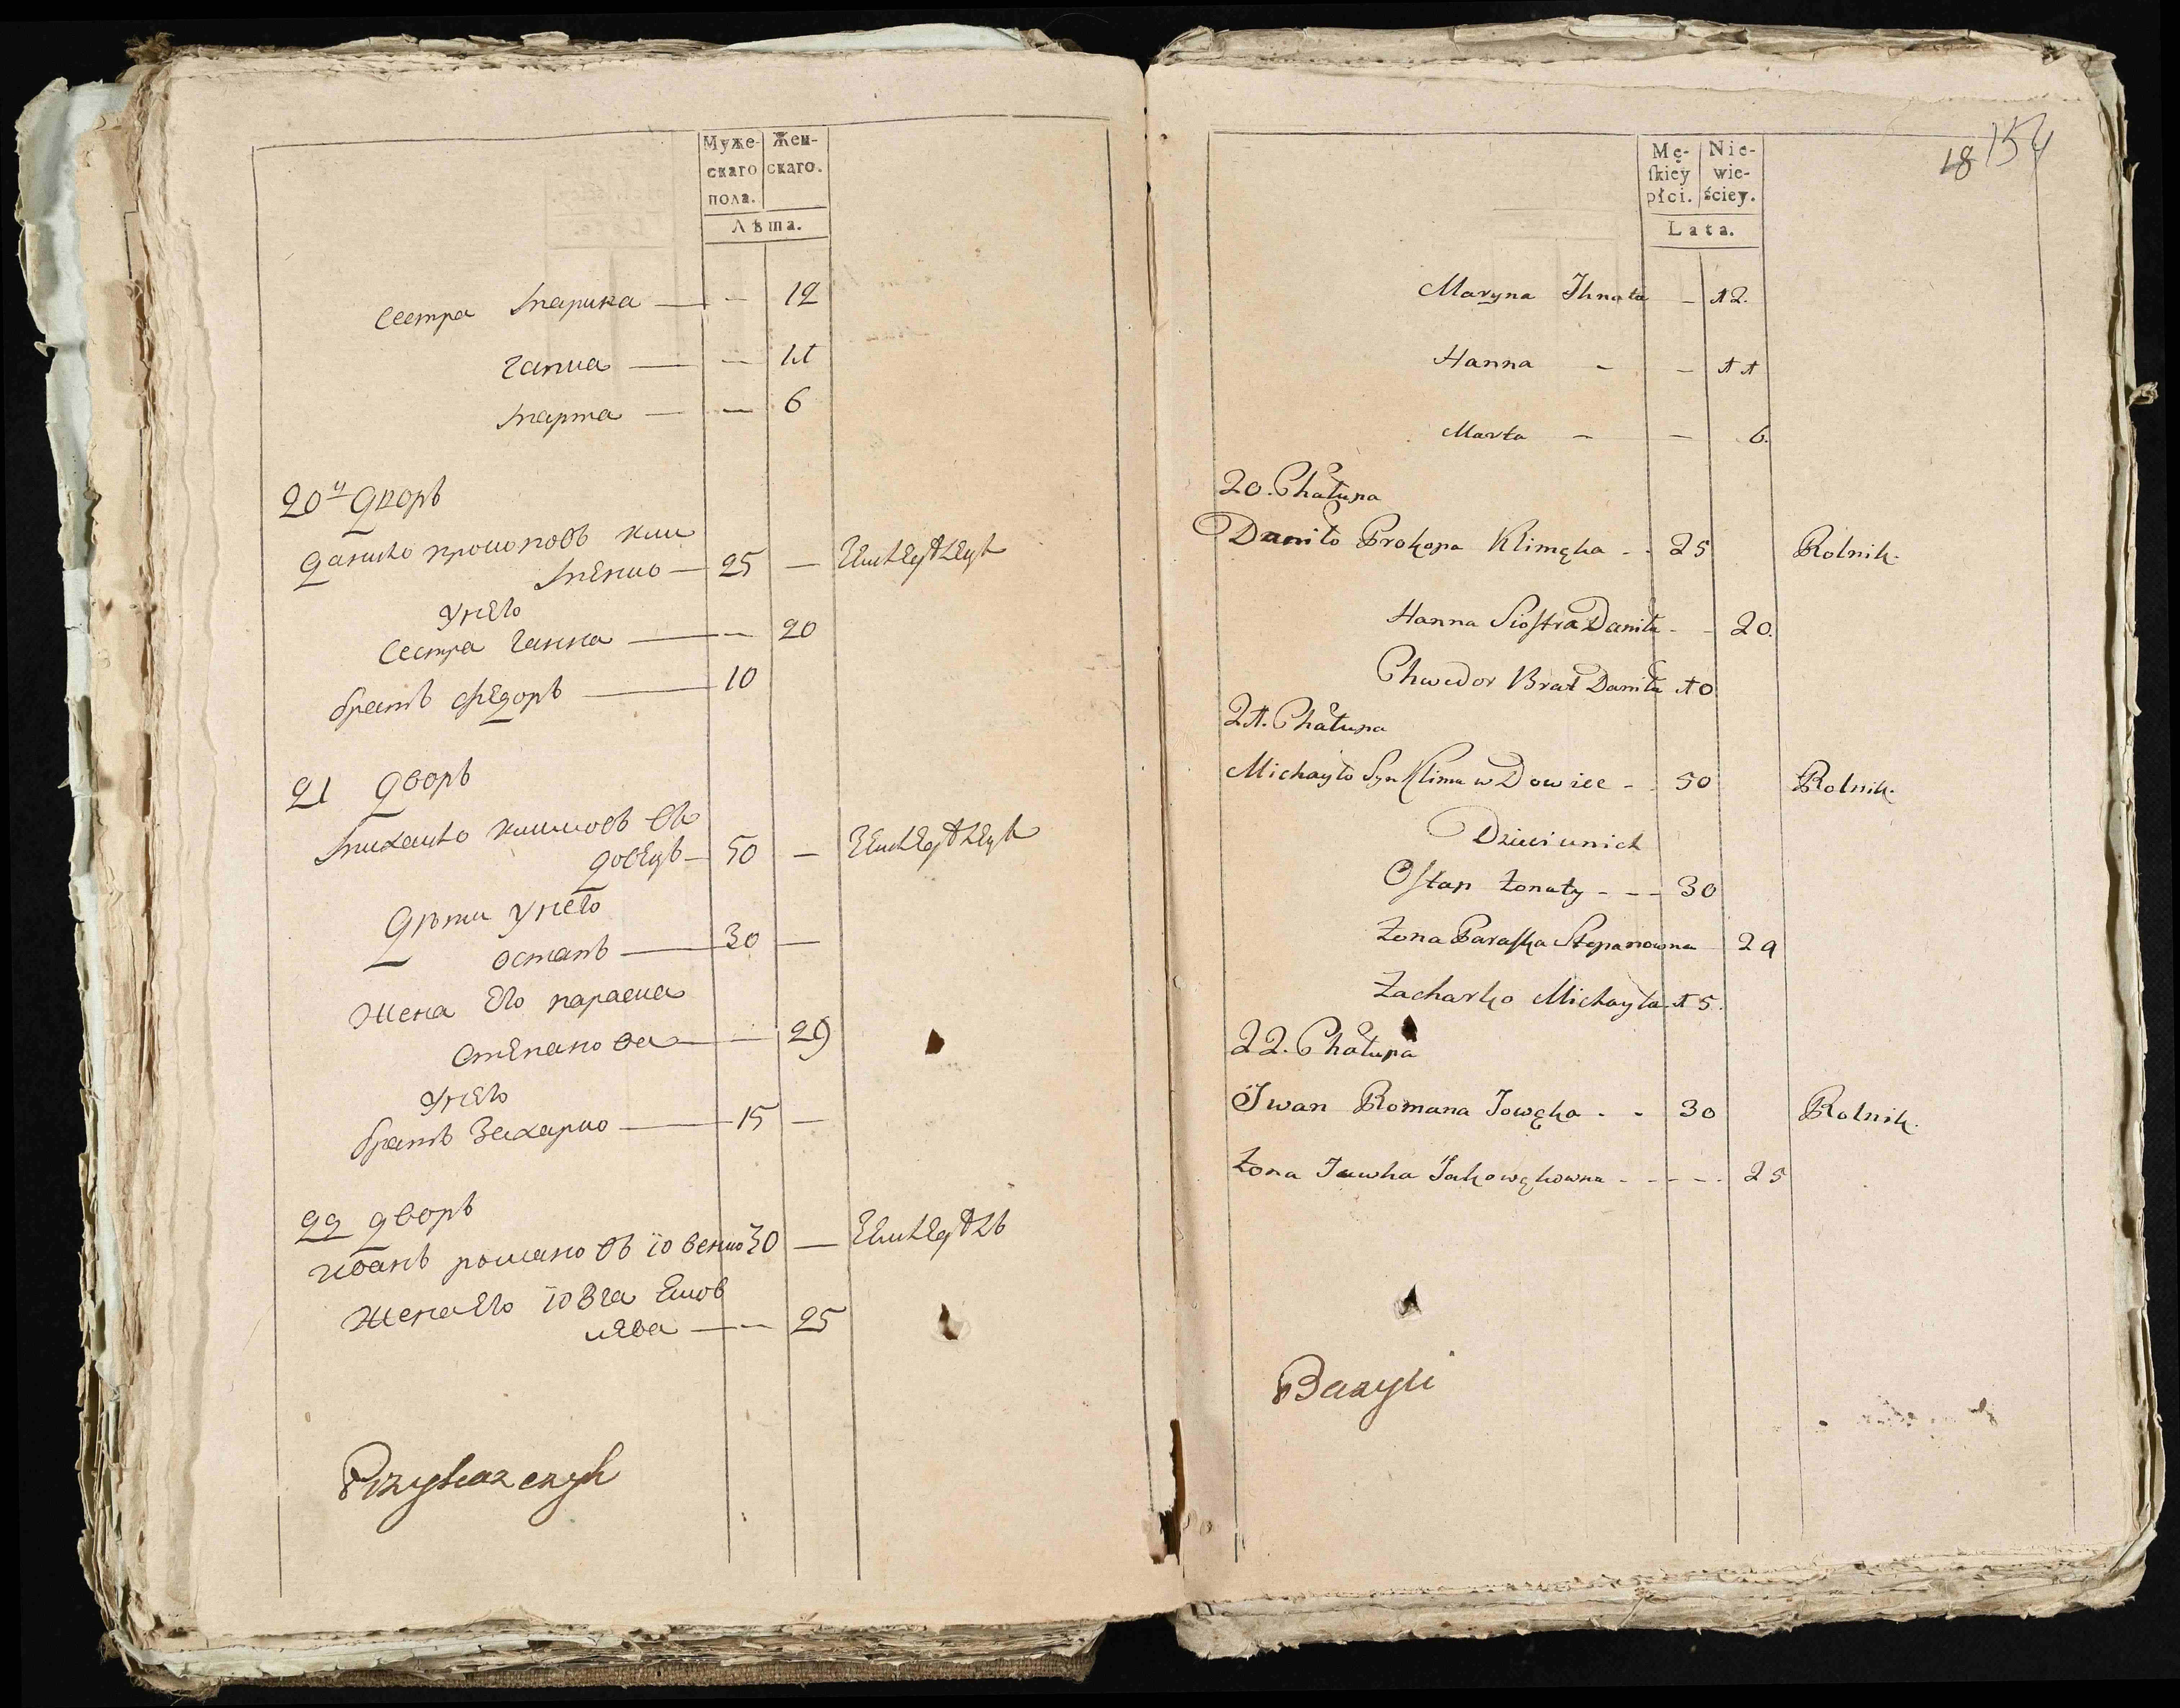 Муже- Жен-
скаго скаго.
пола.
Лѣта.
Сестра марина — — 12
ганна — — 11
марта — — 6
20й дворъ
данило прокоповъ кли
менко — 25 —
у него
Сестра ганна — — 20
братъ федоръ — 10
21 дворъ
михаило климовъ в
довецъ — 50 —
Дѣти у него
остапъ — 30 —
жена его параска
степанова — — 29
у него
братъ Захарко — 15 —
22 дворъ
иванъ романовъ іовенко 30 —
жена его іовга Яков
лева — — 25
Przykazczyk
18 154
Mę- Nie-
ſkiey wie-
płci. ściey.
Lata.
Maryna Ihnata - 12.
Hanna - - 11
Marta - - 6.
20. Chałupa
Daniło Prokopa Klimęka - - 25 Rolnik.
Hanna Siostra Daniła - - 20.
Chwedor Brat Daniła 10
21. Chałupa
Michayło Syn Klima wDowiec - 50 Rolnik.
Dzieci unich
Ostap żonaty - - - 30
Żona Paraska Stepanowna 29
Zacharko Michayła 15.
22. Chałupa
Iwan Romana Jowęka - - 30 Rolnik.
Żona Jawha Jakowękowna - - - - 25
Bazyli